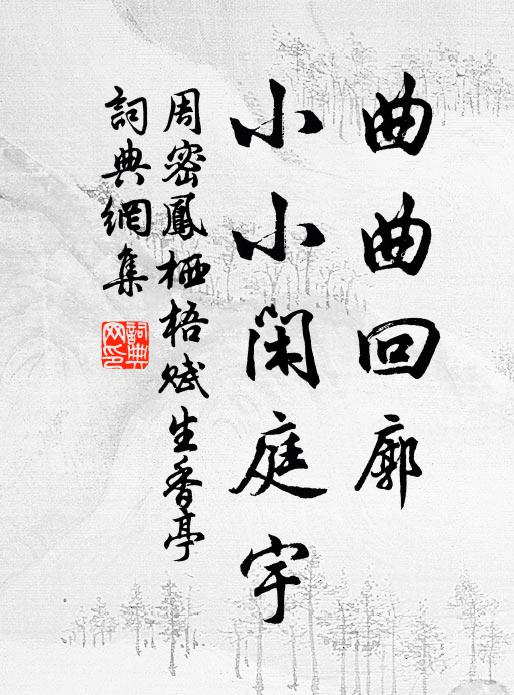 曲曲回廓
小小闲庭宇
周密鳳栖梧赋生香亭
詞典網集
詞典
网印